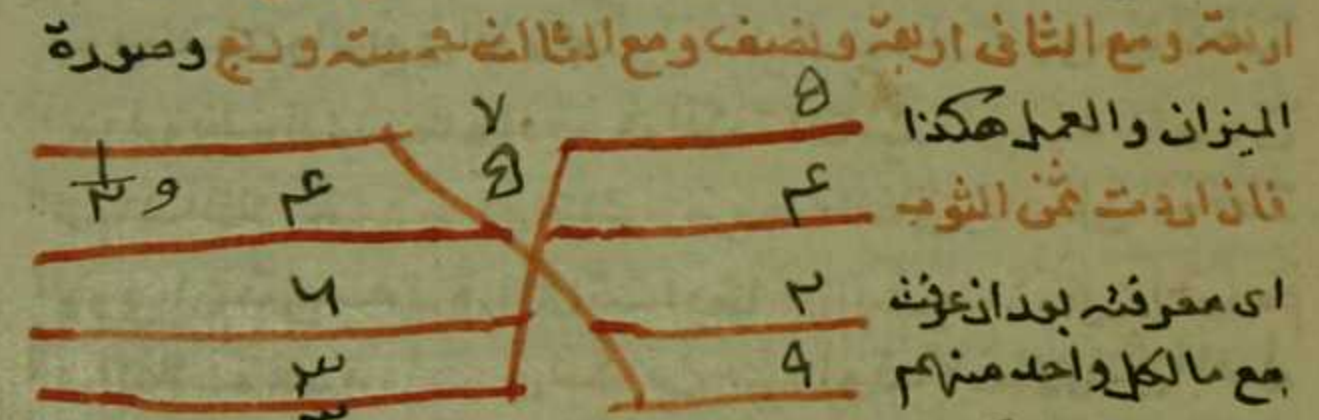 اربعة ومع الثانى اربعة ونصف ومع الثالث خمسته وربع وصورة
الميزان والعمل هكذا
فان اردت ثمن الثوب
اى معرفته بعد ان عرفت
مع ما لكل واحد منهم
۵ ٧
۴ ۵ ۴ و
٢ ٦
٩ ٣